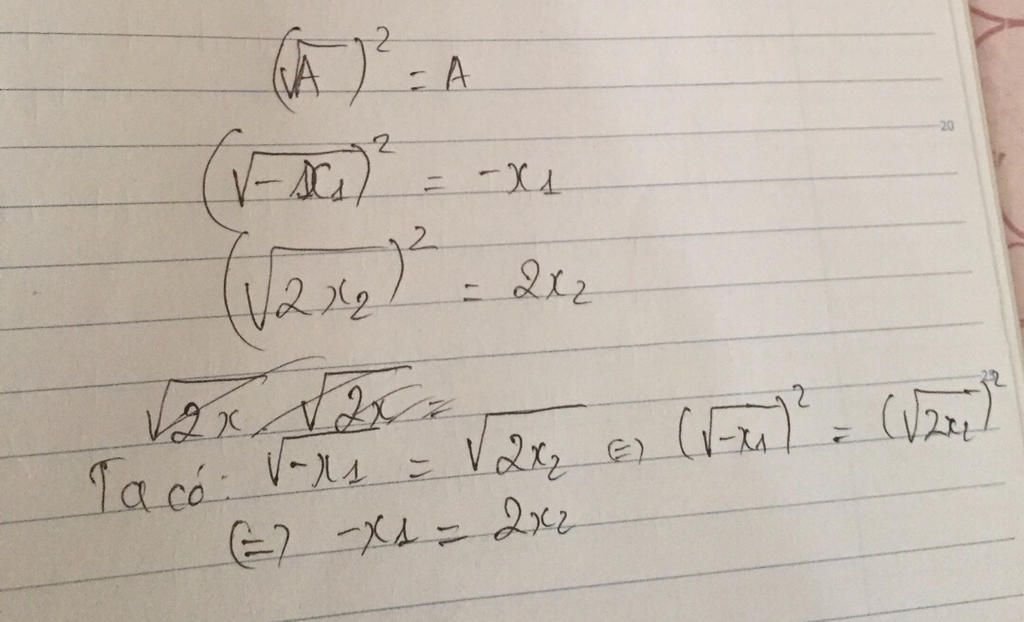 (√A)² = A
20
(√-x₁)² = -x₁
(√2x₂)² = 2x₂
√2x √2x =
Ta có: √-x₁ = √2x₂ ⇔ (√-x₁)² = (√2x₂)²
⇔ -x₁ = 2x₂